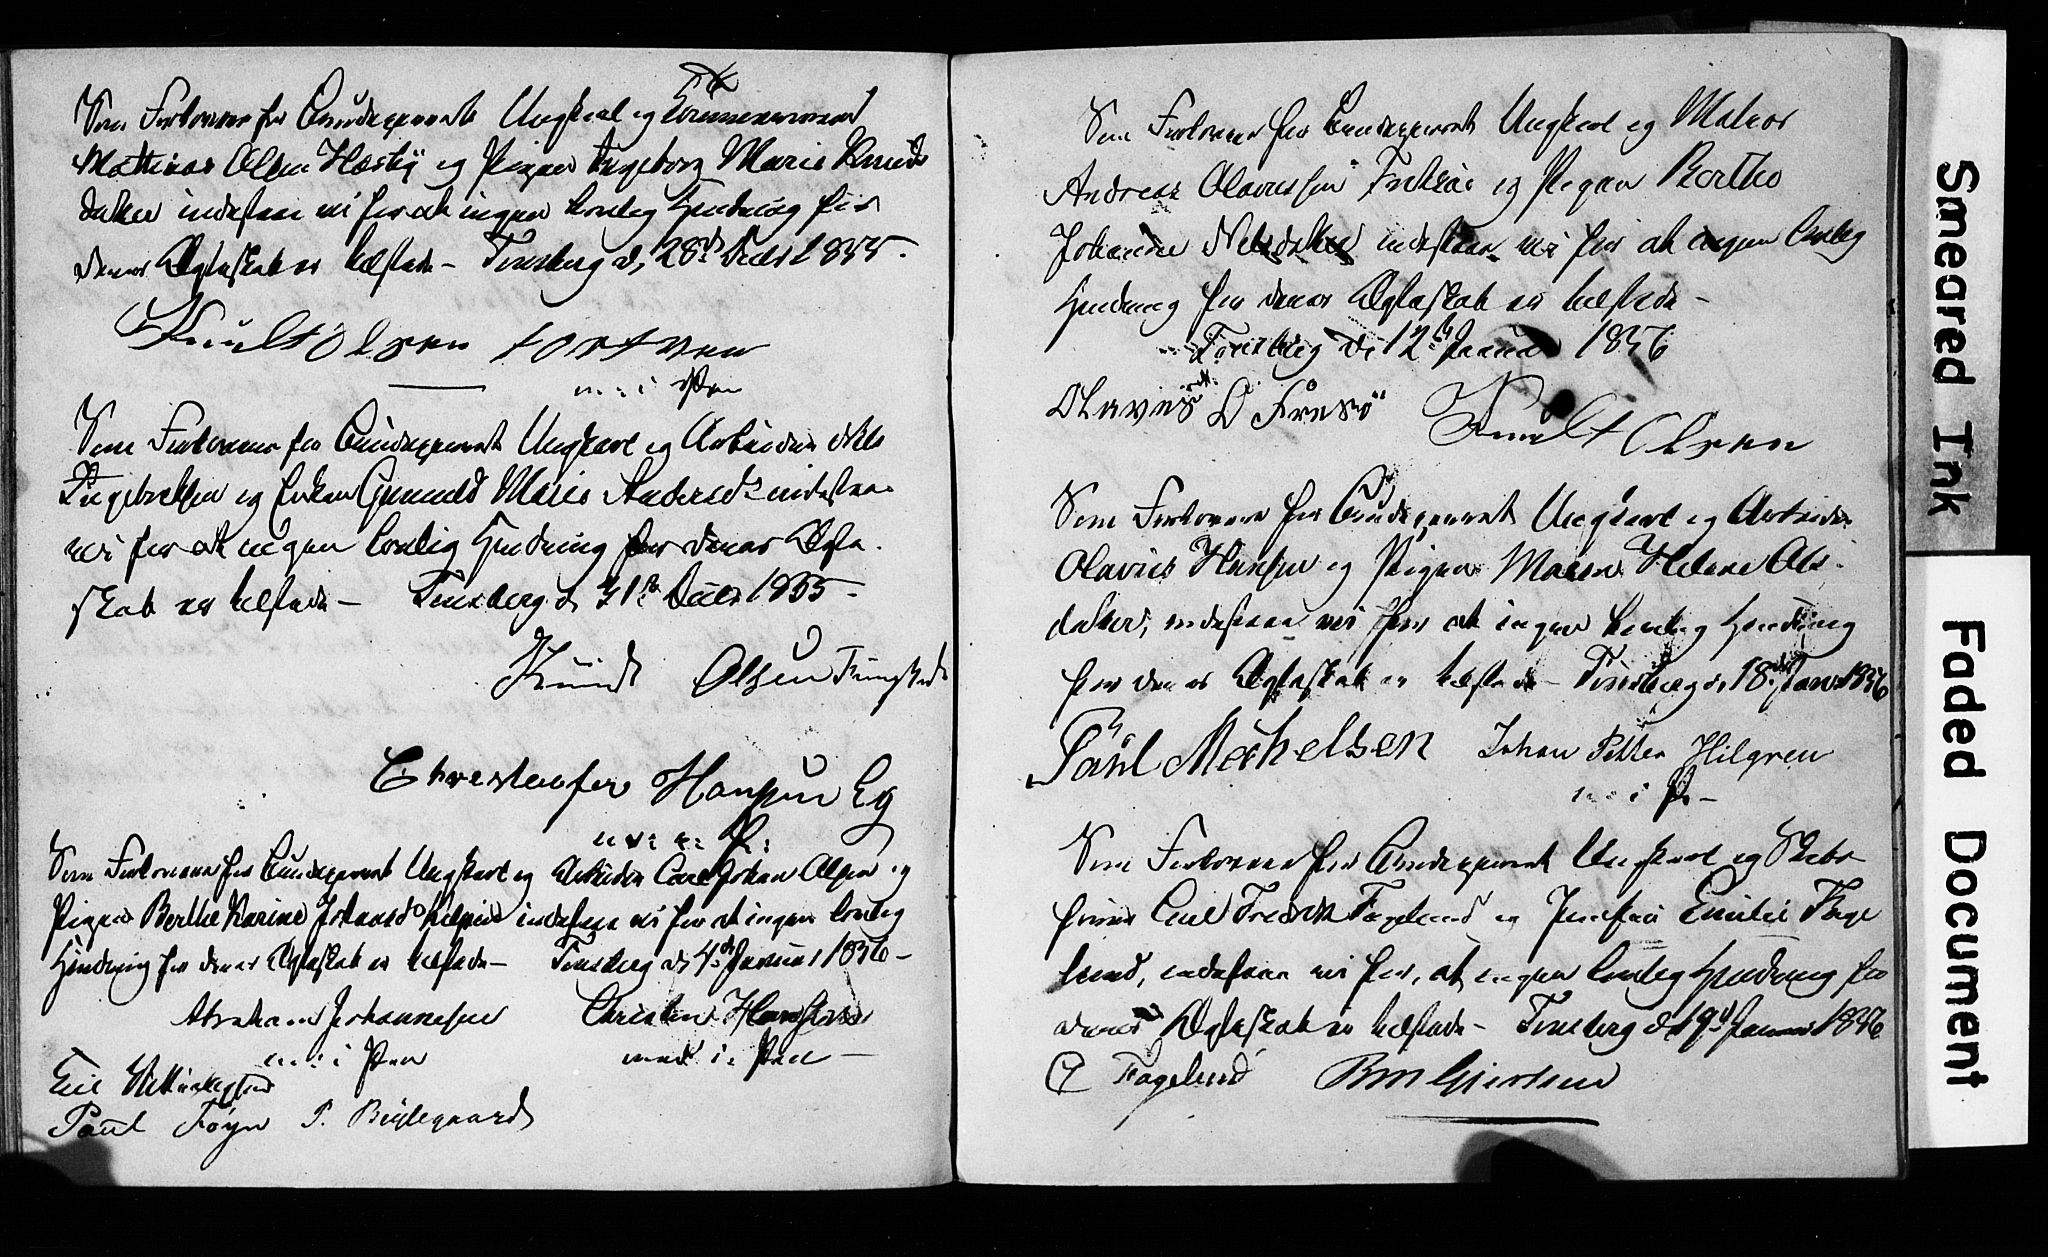 Som Forlovere for Brudeparret Ungkarl og Tømmermand
Mathias Olsen Hæsby og Pigen Ingeborg Marie Knuds
datter indestaae vi for at ingen lovlig Hindring for
deres Ægteskab er bekjendt – Tønsberg d. 28de Decbr 1855.
Knudt Olsen tortven
m: i Pen
Som Forlovere for Brudeparret Ungkarl og Arbeider
Ingebretsen og Enken Gunnild Marie Andersd: indestaae
vi for at ingen lovlig Hindring for deres Ægte-
skab er bekjendt – Tønsberg d 31te Decbr 1855 –
Knud Olsen
Christoffer Hansen Eg
m: i: P:
Som Forlovere for Brudeparret Ungkarl og Arbeider Carl Johan Olsen og
Pigen Berthe Karine Johansd indestaae vi for at ingen lovlig
Hindring for deres Ægteskab er bekjendt – Tønsberg d. 4de Januar 1856 –
Abraham Johannesen Christen Hansen
m: i Pen med i: Pen –
Paul Føyn P. Bøylegaard
Som Forlovere for Brudeparret Ungkarl og Matros
Andreas Olavessen og Pigen Berthe
Johanne Nilsdatter indestaae vi for at ingen lovlig
Hindring for deres Ægteskab er bekjendt –
Tønsberg d. 12te Januar 1856
Olaves O Fresö Knudt Olsen
Som Forlovere for Brudeparret Ungkarl og Arbeider
Olavus Hansen og Pigen Maren Helene Ols-
datter, indestaae vi for at ingen lovlig Hindring
for deres Ægteskab er bekjendt – Tønsberg d. 18de Janr 1856
Paul Mekelsen Johan Petter Hilgren
m: i P –
Som Forlovere for Brudeparret Ungkarl og Skibs-
fører Carl Fredrik Fagelund og Jomfru Emilie Fage
lund, indestaae vi for, at ingen lovlig Hindring for
deres Ægteskab er bekjendt – Tønsberg d 19de Januar 1856
C Fagelund Bm Gjertsen
Smeared Ink
Faded Document